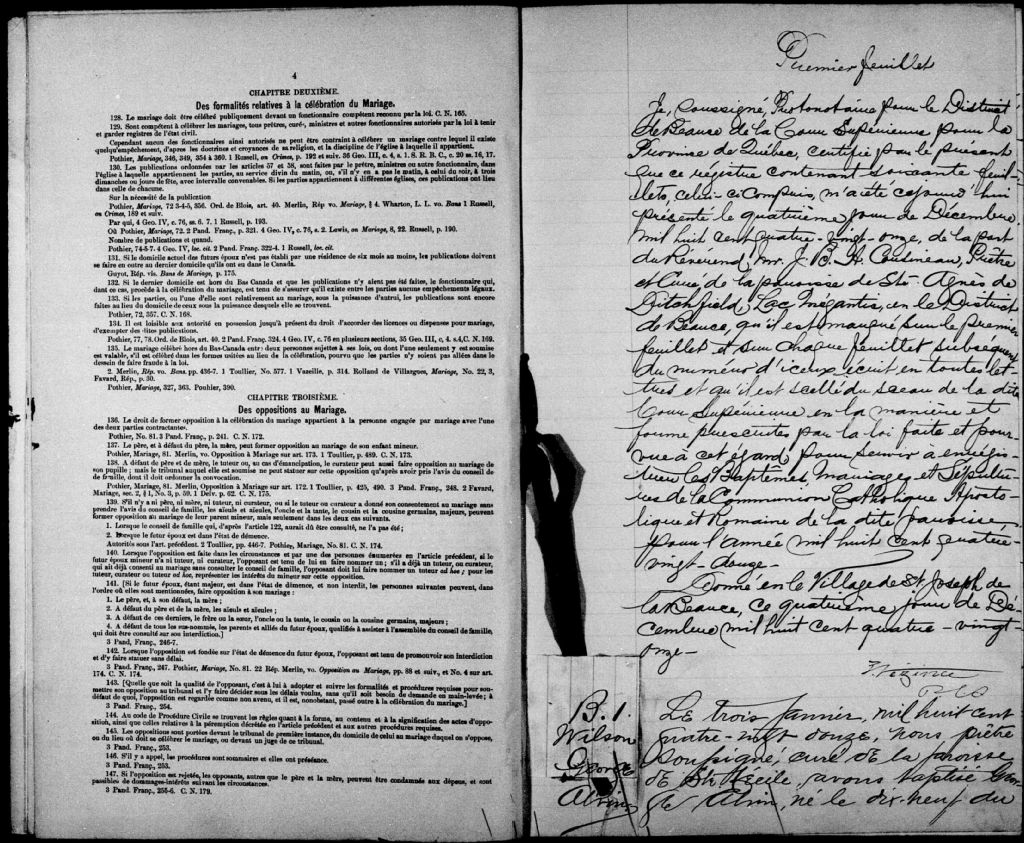 4
CHAPITRE DEUXIÈME.
Des formalités relatives à la célébration du Mariage.
128. Le mariage doit être célébré publiquement devant un fonctionnaire compétent reconnu par la loi. C. N. 165.
129. Sont compétents à célébrer les mariages, tous prêtres, curé-, ministres et autres fonctionnaires autorisés par la loi à tenir
et garder registres de l'état civil.
Cependant aucun des fonctionnaires ainsi autorisés ne peut être contraint à célébrer un mariage contre lequel il existe
quelqu'empêchement, d'après les doctrines et croyances de sa religion, et la discipline de l'église à laquelle il appartient.
Pothier, Mariage, 346, 349, 354 & 360. 1 Russell, on Crimes, p. 192 et suiv. 36 Geo. III, c. 4, s. 1. S. R. B. C., c. 20 ss. 16, 17.
130. Les publications ordonnées par les articles 57 et 58, sont faites par le prêtre, ministre ou autre fonctionnaire, dans
l'église à laquelle appartiennent les parties, au service divin du matin, ou, s'il n'y en a pas le matin, à celui du soir, à trois
dimanches ou jours de fête, avec intervalle convenables. Si les parties appartiennent à différentes églises, ces publications ont lieu
dans celle de chacune.
Sur la nécessité de la publication
Pothier, Mariage, 72 3-4-5, 356. Ord. de Blois, art. 40. Merlin, Rép vo. Mariage, § 4. Wharton, L. L. vo. Bans 1 Russell,
on Crimes, 189 et suiv.
Par qui, 4 Geo. IV, c. 76, ss. 6. 7. 1 Russell, p. 193.
Où Pothier, Mariage, 72. 2 Pand. Franç., p. 321. 4 Geo. IV, c. 76, s. 2. Lewis, on Mariage, 8, 22. Russell, p. 190.
Nombre de publications et quand.
Pothier, 74-5-7. 4 Geo. IV, loc. cit. 2 Pand. Franç. 322-4. 1 Russell, loc. cit.
131. Si le domicile actuel des futurs époux n'est pas établi par une résidence de six mois au moins, les publications doivent
se faire en outre au dernier domicile qu'ils ont eu dans le Canada.
Guyot, Rép. vis. Bans de Mariage, p. 175.
132. Si le dernier domicile est hors du Bas Canada et que les publications n'y aient pas été faites, le fonctionnaire qui,
dans ce cas, procède à la célébration du mariage, est tenu de s'assurer qu'il existe entre les parties aucuns empêchements légaux.
133. Si les parties, ou l'une d'elle sont relativement au mariage, sous la puissance d'autrui, les publications sont encore
faites au lieu du domicile de ceux sous la puissance desquels elle se trouvent.
Pothier, 72, 357. C. N. 168.
134. Il est loisible aux autorité en possession jusqu'à présent du droit d'accorder des licences ou dispenses pour mariage,
d'exempter des dites publications.
Pothier, 77, 78. Ord. de Blois, art. 40. 2 Pand. Franç. 324. 4 Geo. IV, c. 76 en plusieurs sections, 35 Geo. III, c, 4. s.4, C. N. 169.
135. Le mariage célébré hors du Bas-Canada entre deux personnes sujettes à ses lois, ou dont l'une seulement y est soumise
est valable, s'il est célébré dans les formes usitées au lieu de la célébration, pourvu que les parties n'y soient pas allées dans le
dessein de faire fraude à la loi.
2. Merlin, Rép. vo. Bans, pp. 436-7. 1 Toullier, No. 577. 1 Vazeille, p. 314. Rolland de Villargues, Mariage, No. 22, 3,
Favard, Rép., p. 30.
Pothier, Mariage, 327, 363. Pouhier, 390.
CHAPITRE TROISIÈME.
Des oppositions au Mariage.
136. Le droit de former opposition à la célébration du mariage appartient à la personne engagée par mariage avec l'une
des deux parties contractantes.
Pothier, No. 81. 3 Pand. Franç., p. 241. C. N. 172.
137. Le père, et à défaut du père, la mère, peut former opposition au mariage de son enfant mineur.
Pothier, Mariage, 81. Merlin, vo. Opposition au Mariage sur art. 173. 1 Toullier, p. 489. C. N. 173.
138. A défaut de père et de mère, le tuteur ou, au cas d'émancipation, le curateur peut aussi faire opposition au mariage de
son pupille ; mais le tribunal auquel elle est soumise ne peut statuer sur cette opposition qu'après avoir pris l'avis du conseil de
famille, dont il doit ordonner la convocation.
Pothier, Mariage, 81. Merlin, Opposition à Mariage sur art. 172. 1 Toullier, p. 425, 490. 3 Pand. Franç., 248. 2 Favard,
Mariage, sec. 2, § 1, No. 3, p. 59. 1 Delv. p. 62. C. N. 175.
139. S'il n'y a ni père, ni mère, ni tuteur, ni curateur, ou si le tuteur ou curateur a donné son consentement au mariage sans
prendre l'avis du conseil de famille, les aïeuls et aïeules, l'oncle et la tante, le cousin et la cousine germains, majeurs, peuvent
former opposition au mariage de leur parent mineur, mais seulement dans les deux cas suivants.
1. Lorsque le conseil de famille qui, d'après l'article 122, aurait dû être consulté, ne l'a pas été ;
2. Lorsque le futur époux est dans l'état de démence.
Autorités sous l'art. précédent. 2 Toullier, pp. 446-7. Pothier, Mariage, No. 81. C. N. 174.
140. Lorsque l'opposition est faite dans les circonstances et par une des personnes énumérées en l'article précédent, si le
futur époux mineur n'a ni tuteur, ni curateur, l'opposant est tenu de lui en faire nommer un ; s'il a déjà un tuteur, ou curateur,
qui ait déjà consenti au mariage sans consulter le conseil de famille, l'opposant doit lui faire nommer un tuteur ad hoc ; pour les
tuteur, curateur ou tuteur ad hoc, représenter les intérêts du mineur sur cette opposition.
141. [Si le futur époux, étant majeur, est dans l'état de démence, et non interdit, les personnes suivantes peuvent, dans
l'ordre où elles sont mentionnées, faire opposition à son mariage :
1. Le père, et, à son défaut, la mère ;
2. A défaut du père et de la mère, les aïeuls et aïeules ;
3. A défaut de ces derniers, le frère ou la sœur, l'oncle ou la tante, le cousin ou la cousine germains, majeurs ;
4. A défaut de tous les sus-nommés, les parents et alliés du futur époux, qualifiés à assister à l'assemblée du conseil de famille,
qui doit être consulté sur son interdiction.]
3 Pand. Franç., 246-7.
142. Lorsque l'opposition est fondée sur l'état de démence du futur époux, l'opposant est tenu de promouvoir son interdiction
et d'y faire statuer sans délai.
3 Pand. Franç., 247. Pothier, Mariage, No. 81. 22 Rép. Merlin, vo. Opposition au Mariage, pp. 88 et suiv., et No. 4 sur art.
174. C. N. 174.
143. [Quelle que soit la qualité de l'opposant, c'est à lui à adopter et suivre les formalités et procédures requises pour sou-
mettre son opposition au tribunal et l'y faire décider sous les délais voulus, sans qu'il soit besoin de demande en main-levée ; à
défaut de quoi, l'opposition est regardée comme non avenu, et il est, nonobstant, passé outre à la célébration du mariage.]
3 Pand. Franç., 254.
144. Au code de Procédure Civile se trouvent les règles quant à la forme, au contenu et à la signification des actes d'oppo-
sition, ainsi que celles relatives à la péremption décrétée en l'article précédent et aux autres procédures requises.
145. Les oppositions sont portées devant le tribunal de première instance, du domicile de celui au mariage duquel on s'oppose,
ou du lieu où doit se célébrer le mariage, ou devant un juge de ce tribunal.
3 Pand. Franç., 253.
146. S'il y a appel, les procédures sont sommaires et elles ont préséance.
3 Pand. Franç., 253.
147. Si l'opposition est rejetée, les opposants, autres que le père et la mère, peuvent être condamnés aux dépens, et sont
passibles de dommages-intérêts suivant les circonstances.
3 Pand. Franç., 255-6. C. N. 179.
Premier feuillet
Je, soussigné, Protonotaire pour le District
de Beauce de la Cour Supérieure pour la
Province de Québec, certifie par le présent
que ce régistre contenant soixante feuil-
lets, celui-ci compris, m'a été cejourd'hui
présenté le quatrième jour de Décembre
mil huit cent quatre-vingt-onze, de la part
du Révérend Mr. J. E. H. Cousineau, Prêtre
et Curé, de la paroisse de Ste Agnès de
Ditchfield, Lac Mégantic, en le District
de Beauce, qu'il est marqué sur le premier
feuillet et sur chaque feuillet subséquent
du numéro d'iceux écrit en toutes let-
tres et qu'il est scellé du sceau de la dite
Cour Supérieure en la manière et
forme prescrites par la loi faite et pour-
vue à cet égard pour servir à enrégis-
trer les Baptêmes, mariages et Sépultu-
res de la Communion Catholique Aposto-
lique et Romaine de la dite paroisse,
pour l'année mil huit cent quatre-
vingt-douze.
Donné en le Village de St. Joseph de
la Beauce, ce quatrième jour de Dé-
cembre mil huit cent quatre-vingt
onze-
P. C. S.
B. 1.
Wilson
George
Alvin
Le trois Janvier, mil huit cent
quatre-vingt douze, nous prêtre
soussigné, curé de la paroisse
de Ste Cécile, avons baptisé Geor-
ge Alvin, né le dix-neuf du